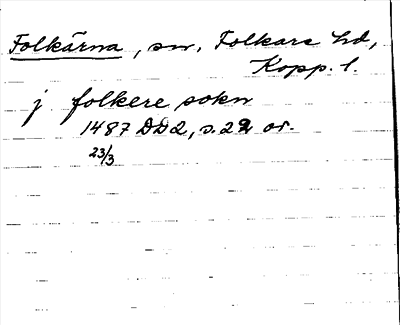 Folkärna, sn, Folkare hd,
Kopp. l.
j folkere sokn
1487 DD2, s. 22 or.
23/3